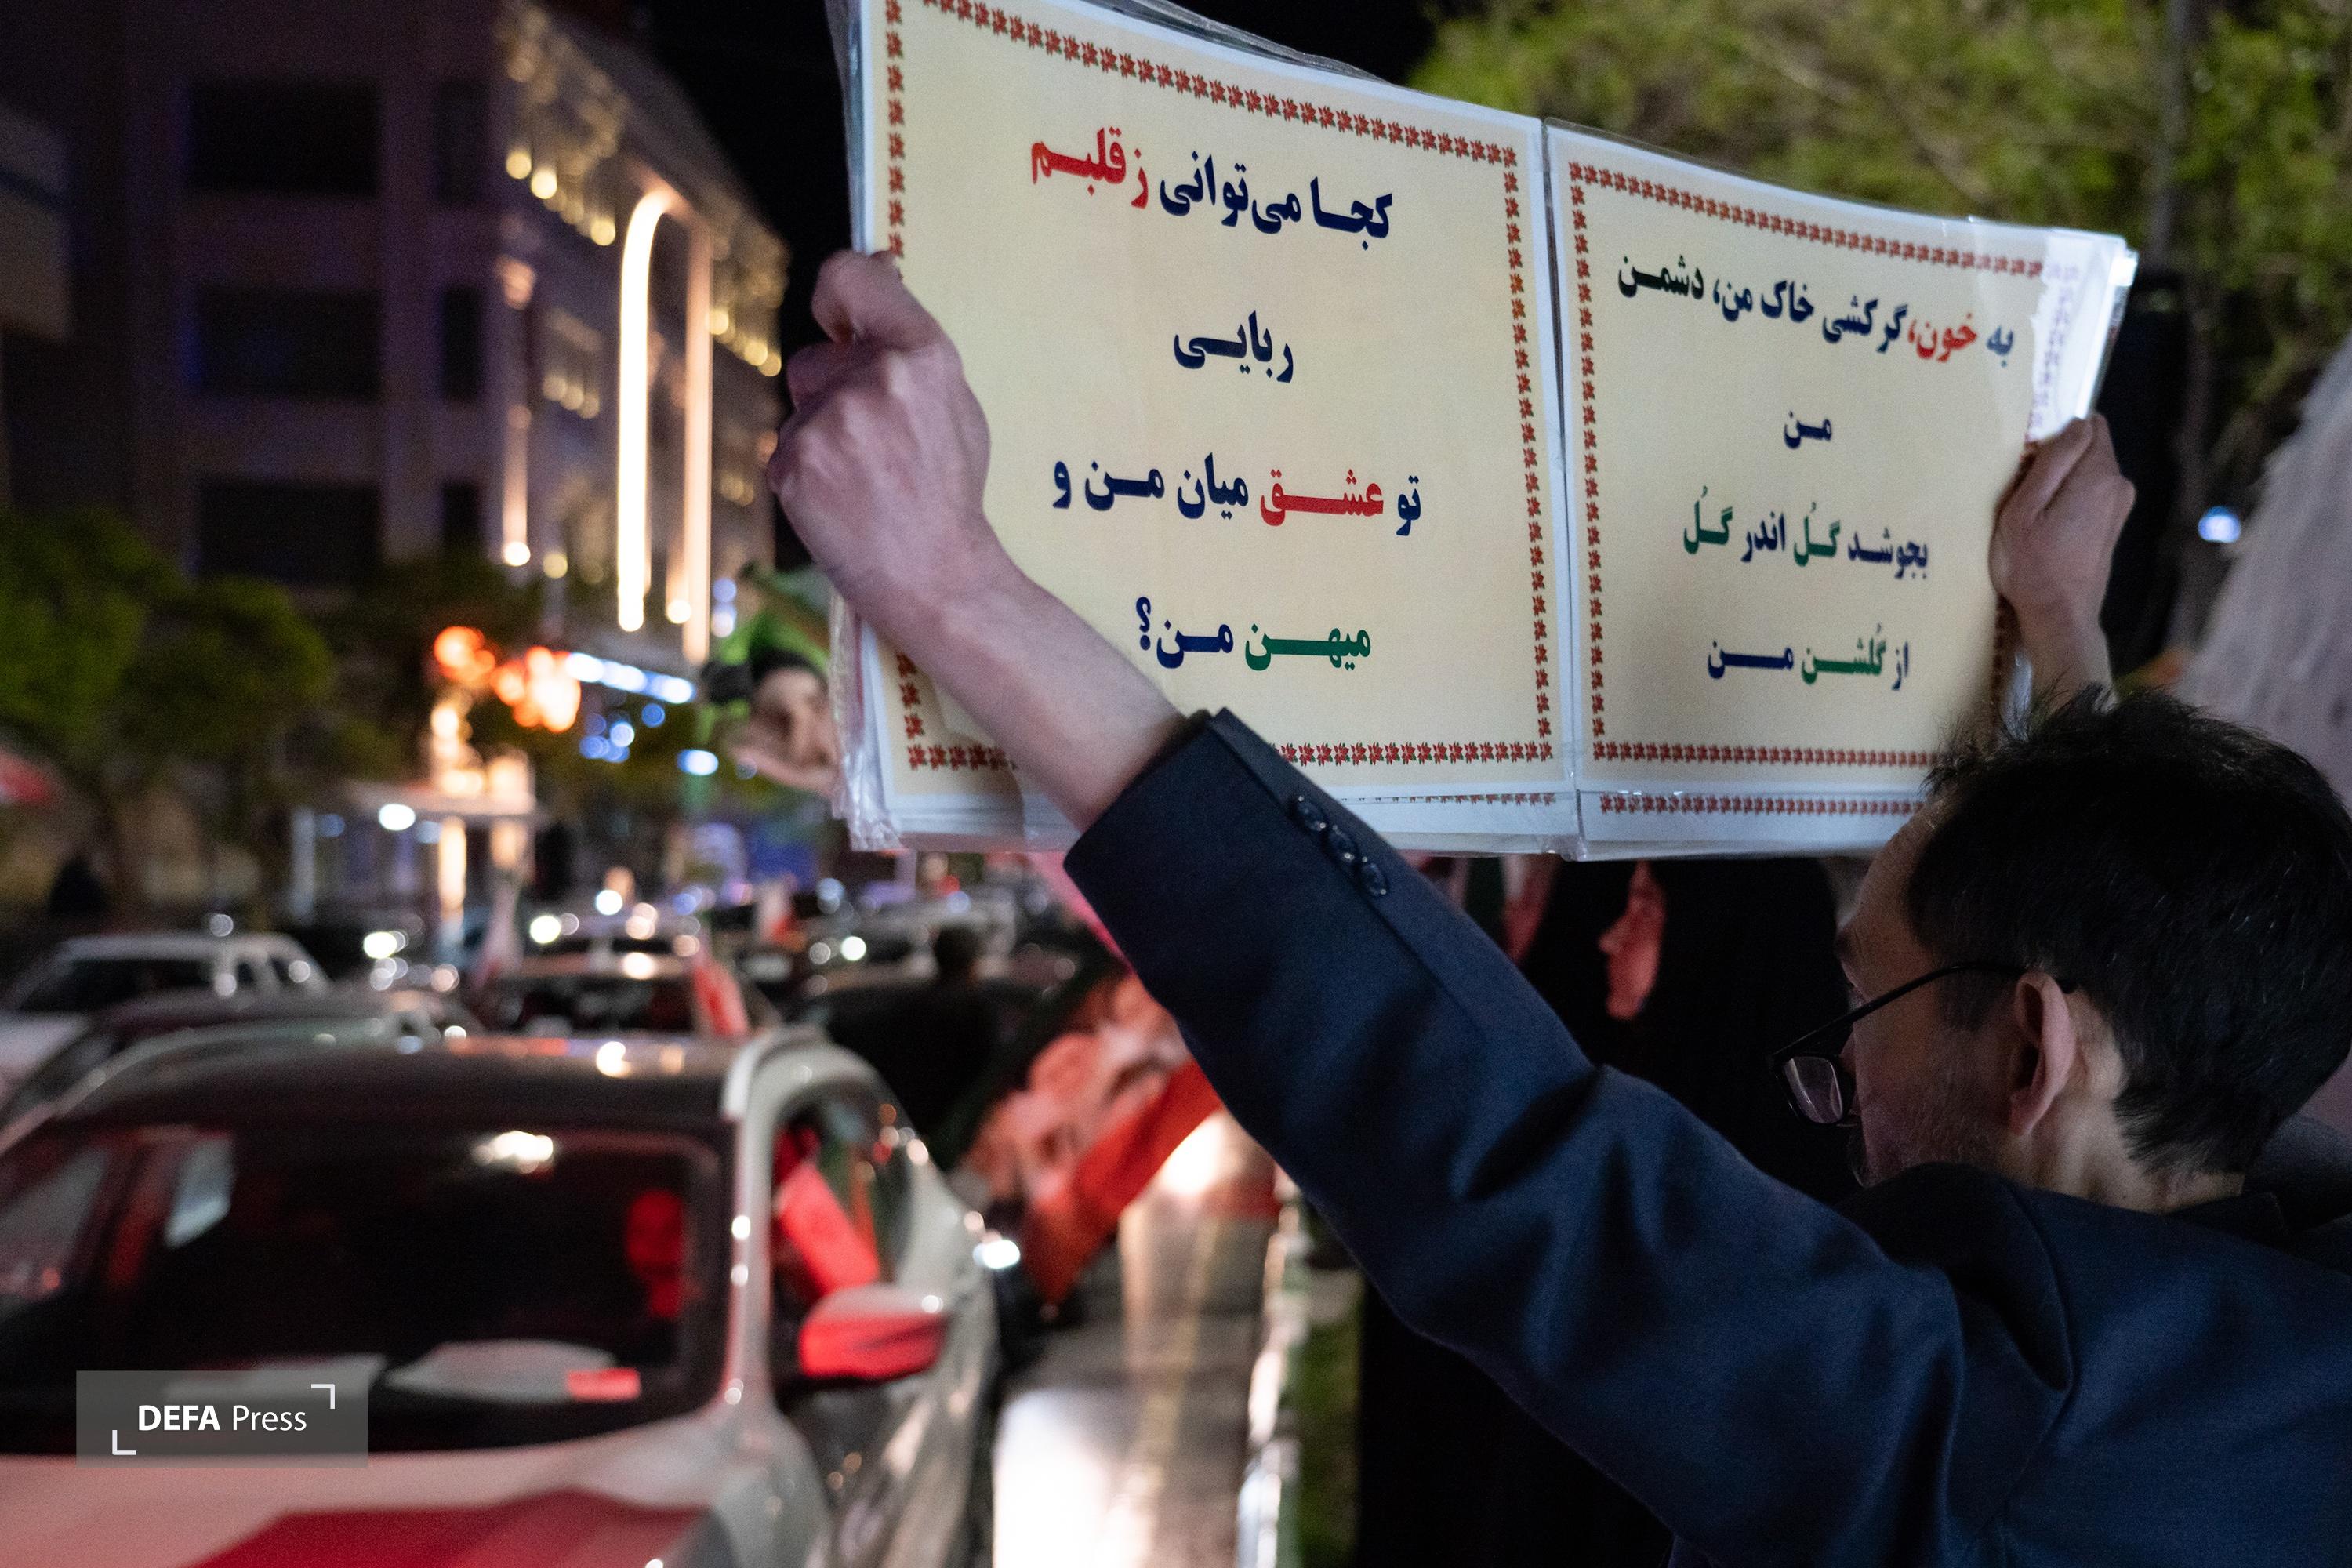 به خون، گر کشی خاک من، دشمن
من
بجوشد گُل اندر گُل
از گُلشن من
کجا می‌توانی زقلبم
ربایی
تو عشق میان من و
میهن من؟
DEFA Press